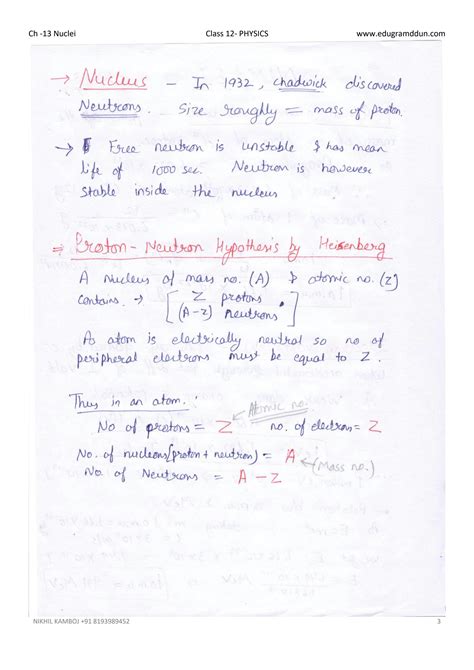 Ch -13 Nuclei Class 12- PHYSICS www.edugramddun.com
→ Nucleus - In 1932, chadwick discovered
Neutrons. Size roughly = mass of proton.
→ Free neutron is unstable & has mean
life of 1000 sec. Neutron is however
stable inside the nucleus
⇒ Proton - Neutron Hypothesis by Heisenberg
A nucleus of mass no. (A) & atomic no. (Z)
contains → [ Z protons
(A-Z) neutrons ] .
As atom is electrically neutral so no. of
peripheral electrons must be equal to Z.
Thus in an atom :
Atomic no.
No of protons = Z no. of electron = Z
No. of nucleons (proton + neutron) = A
(Mass no.)
No. of Neutrons = A - Z
NIKHIL KAMBOJ +91 8193989452 3